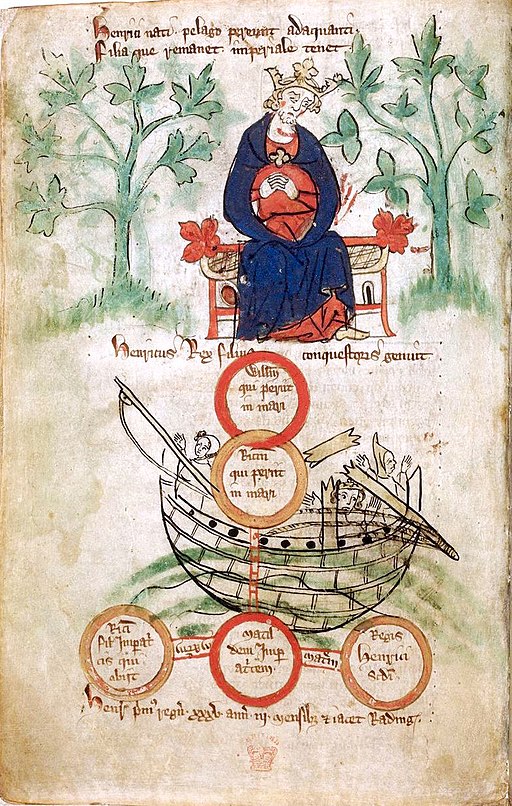 Henrici nati pelago pereunt adaquanti
Filia que remanet imperiale tenet
Henricus Rex filius conquestoris genuit
Willm
qui periit
in mari
Ricm
qui periit
in mari
Ric
fil Impat
cis qui
obijt
Matil
dem Imp
atcem
Regis
Henrici
Scdi
Henr pm regn xxxv ann iij mensibz & iacet Rading